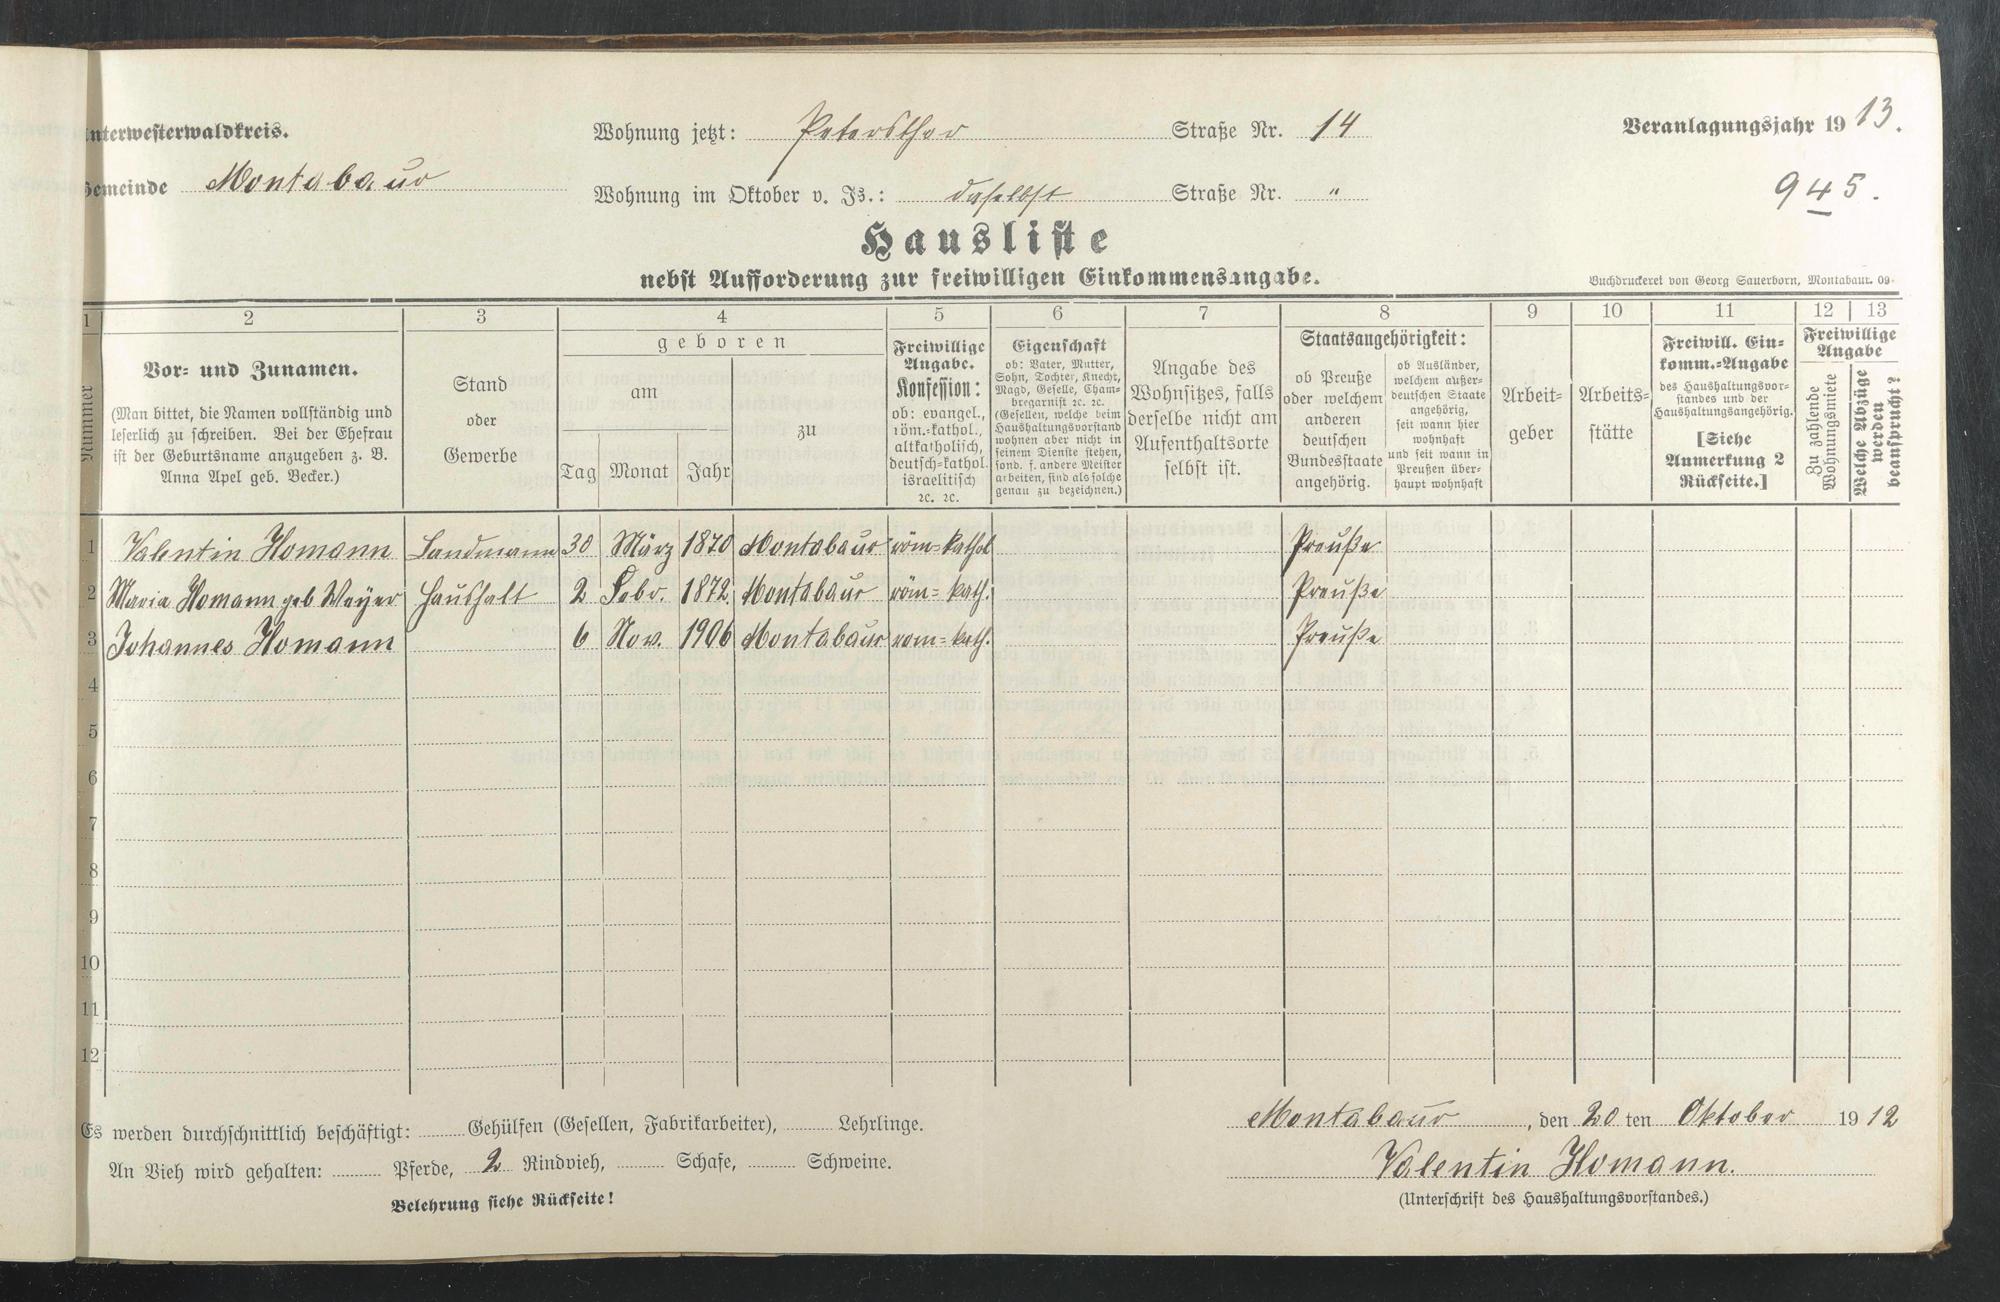 Unterwesterwaldkreis.
Wohnung jetzt: Petersthor Straße Nr. 14
Veranlagungsjahr 1913.
Gemeinde Montabaur
Wohnung im Oktober v. Js.: daselbst Straße Nr. "
945.
Hausliste
nebst Aufforderung zur freiwilligen Einkommensangabe.
Buchdruckerei von Georg Sauerborn, Montabaur. 09
1 2 3 4 5 6 7 8 9 10 11 12 13
Nummer
Vor- und Zunamen.
(Man bittet, die Namen vollständig und
leserlich zu schreiben. Bei der Ehefrau
ist der Geburtsname anzugeben z. B.
Anna Apel geb. Becker.)
Stand
oder
Gewerbe
geboren
am
zu
Tag Monat Jahr
Freiwillige
Angabe.
Konfession:
ob: evangel.,
röm.-kathol.,
altkatholisch,
deutsch-kathol.
israelitisch
ꝛc. ꝛc.
Eigenschaft
ob: Vater, Mutter,
Sohn, Tochter, Knecht,
Magd, Geselle, Cham-
bregarnist ꝛc. ꝛc.
(Gesellen, welche beim
Haushaltungsvorstand
wohnen aber nicht in
seinem Dienste stehen,
sond. f. andere Meister
arbeiten, sind als solche
genau zu bezeichnen.)
Angabe des
Wohnsitzes, falls
derselbe nicht am
Aufenthaltsorte
selbst ist.
Staatsangehörigkeit:
ob Preuße
oder welchem
anderen
deutschen
Bundesstaate
angehörig.
ob Ausländer,
welchem außer-
deutschen Staate
angehörig,
seit wann hier
wohnhaft
und seit wann in
Preußen über-
haupt wohnhaft
Arbeit-
geber
Arbeits-
stätte
Freiwill. Ein-
komm.-Angabe
des Haushaltungsvor-
standes und der
Haushaltungsangehörig.
[Siehe
Anmerkung 2
Rückseite.]
Freiwillige
Angabe
Zu zahlende
Wohnungsmiete
Welche Abzüge
werden
beansprucht?
1 Valentin Homann Landmann 30 März 1870 Montabaur röm-kathol Preuße
2 Maria Homann geb. Weyer Haushalt 2 Febr. 1872. Montabaur röm-kath. Preuße
3 Johannes Homann 6 Nov. 1906 Montabaur röm-kath. Preuße
4
5
6
7
8
9
10
11
12
Es werden durchschnittlich beschäftigt: Gehülfen (Gesellen, Fabrikarbeiter), Lehrlinge.
Montabaur, den 20ten Oktober 1912
An Vieh wird gehalten: Pferde, 2 Rindvieh, Schafe, Schweine.
Valentin Homann.
Belehrung siehe Rückseite!
(Unterschrift des Haushaltungsvorstandes.)